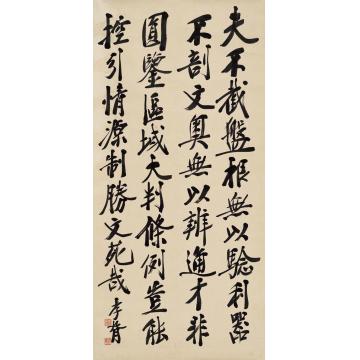 夫不截盤根無以騐利器
不剖文奧無以辨通才非
圓鑒區域大判條例豈能
控引情源制勝文苑哉 孝胥